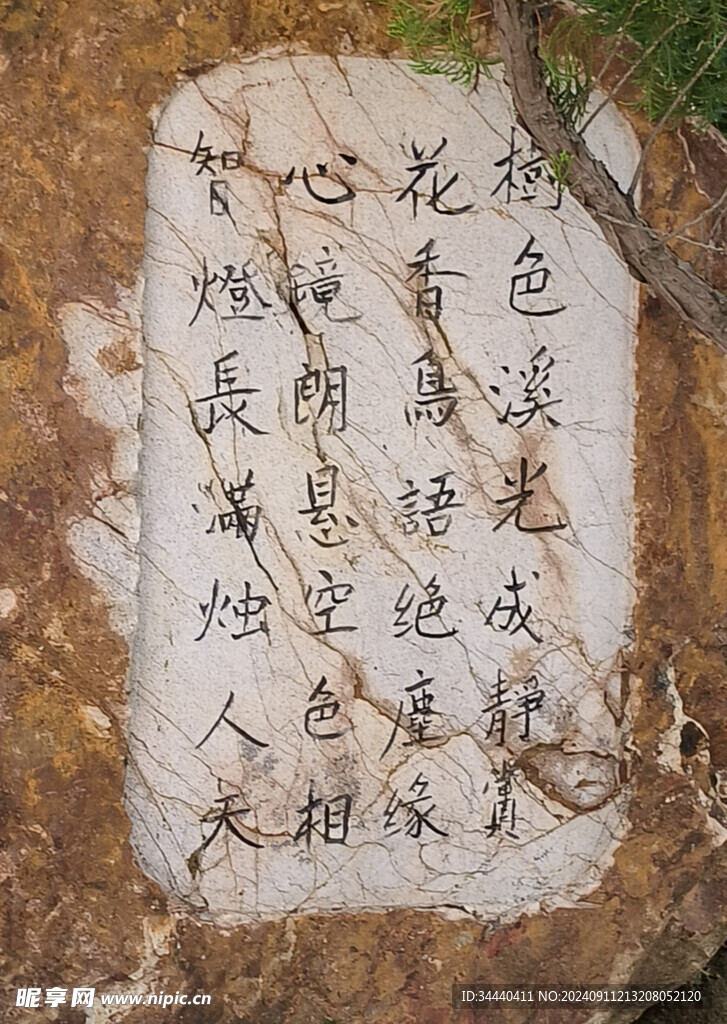 樹色溪光成靜賞
花香鳥語绝塵缘
心境朗悬空色相
智燈長滿烛人天
昵享网 www.nipic.cn
ID:34440411 NO:20240911213208052120